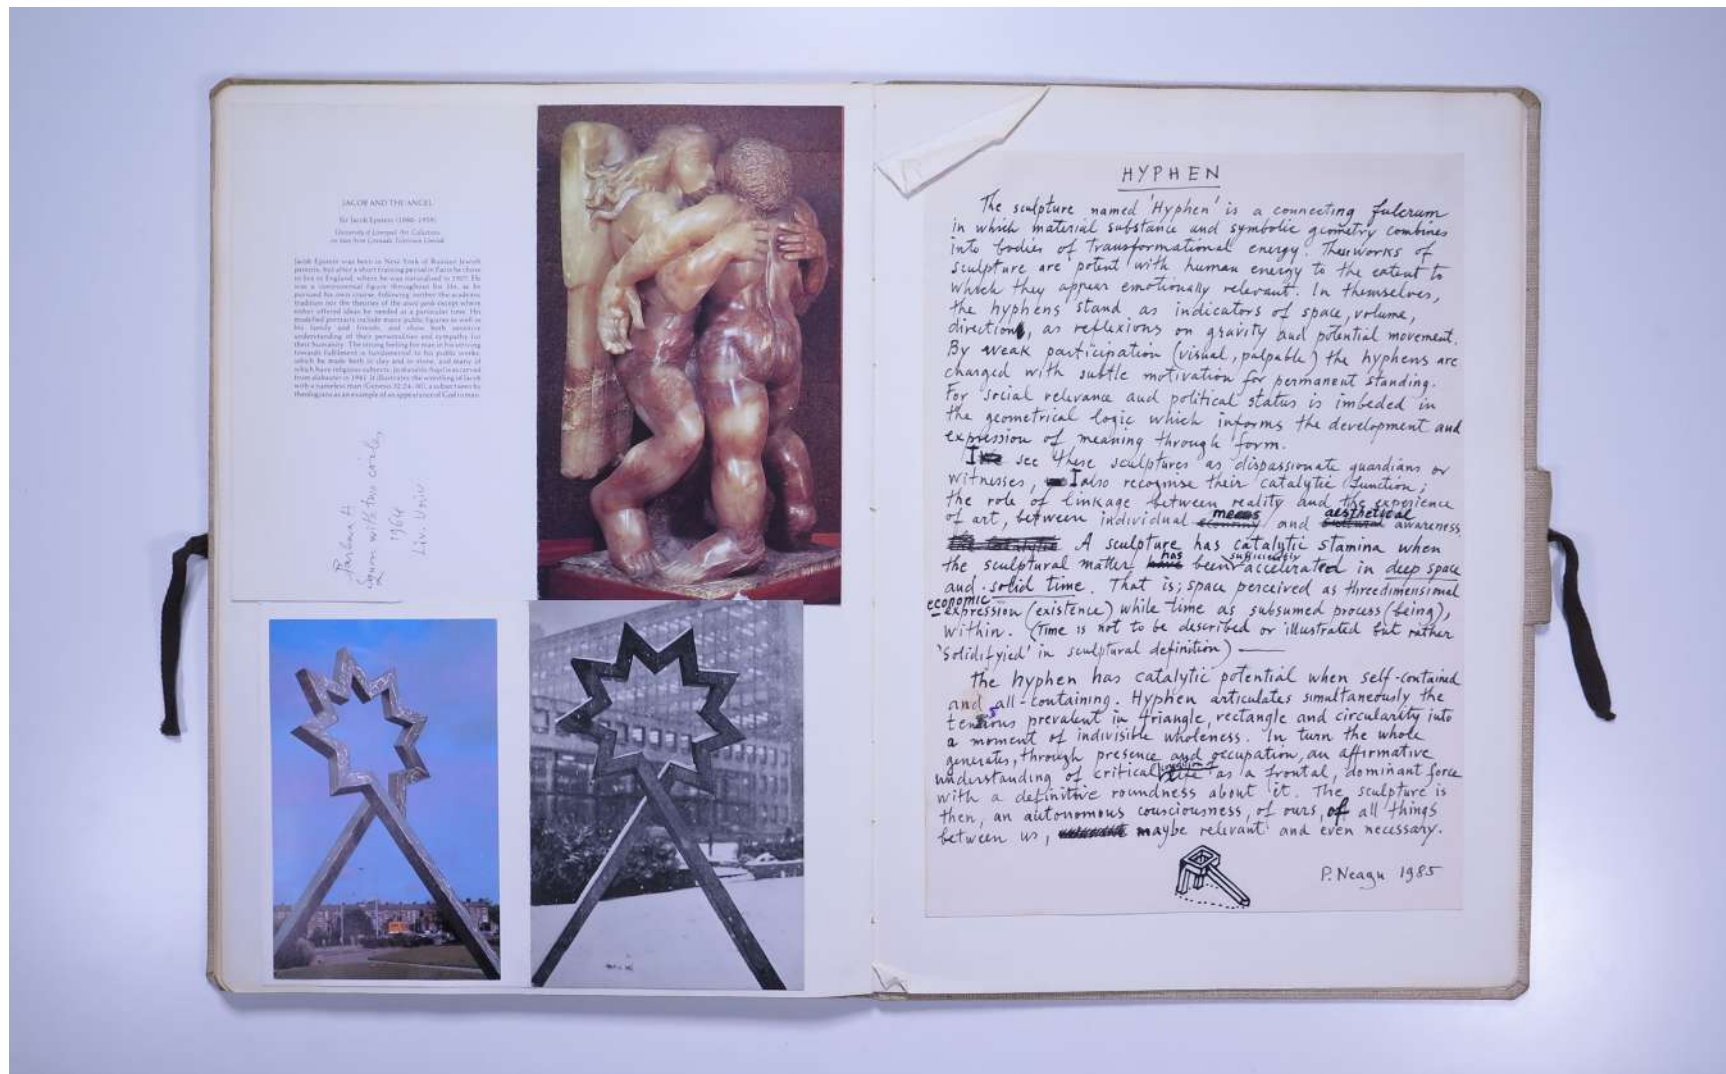 JACOB AND THE ANGEL
Sir Jacob Epstein (1880-1959)
University of Liverpool Art Collections
on loan from Granada Television Limited
Jacob Epstein was born in New York of Russian Jewish
parents, but after a short training period in Paris he chose
to live in England, where he was naturalised in 1907. He
was a controversial figure throughout his life, as he
pursued his own course, following neither the academic
tradition nor the theories of the avant garde except where
either offered ideas he needed at a particular time. His
modelled portraits include many public figures as well as
his family and friends, and show both sensitive
understanding of their personalities and sympathy for
their humanity. The strong feeling for man in his striving
towards fulfilment is fundamental to his public works,
which he made both in clay and in stone, and many of
which have religious subjects. Jacob and the Angel was carved
from alabaster in 1941. It illustrates the wrestling of Jacob
with a nameless man (Genesis 32:24-30), a subject seen by
theologians as an example of an appearance of God to man.
Barbara H
Squares with two circles
1964
Liv. Univ
HYPHEN
The sculpture named 'Hyphen' is a connecting fulcrum
in which material substance and symbolic geometry combines
into bodies of transformational energy. These works of
sculpture are potent with human energy to the extent to
which they appear emotionally relevant. In themselves,
the hyphens stand as indicators of space, volume,
direction, as reflexions on gravity and potential movement.
By weak participation (visual, palpable) the hyphens are
charged with subtle motivation for permanent standing.
For social relevance and political status is imbeded in
the geometrical logic which informs the development and
expression of meaning through form.
I see these sculptures as dispassionate guardians or
witnesses, I also recognise their catalytic function;
the role of linkage between reality and the experience
of art, between individual means and aesthetical awareness.
A sculpture has catalytic stamina when
the sculptural matter has been sufficiently accelerated in deep space
and solid time. That is; space perceived as threedimensional
economic expression (existence) while time as subsumed process (being),
within. (Time is not to be described or illustrated but rather
'Solidifyied' in sculptural definition) —
The hyphen has catalytic potential when self-contained
and all-containing. Hyphen articulates simultaneously the
tensions prevalent in triangle, rectangle and circularity into
a moment of indivisible wholeness. In turn the whole
generates, through presence and occupation, an affirmative
understanding of critical as a frontal, dominant force
with a definitive roundness about it. The sculpture is
then, an autonomous consciousness, of ours, of all things
between us, maybe relevant and even necessary.
P. Neagu 1985